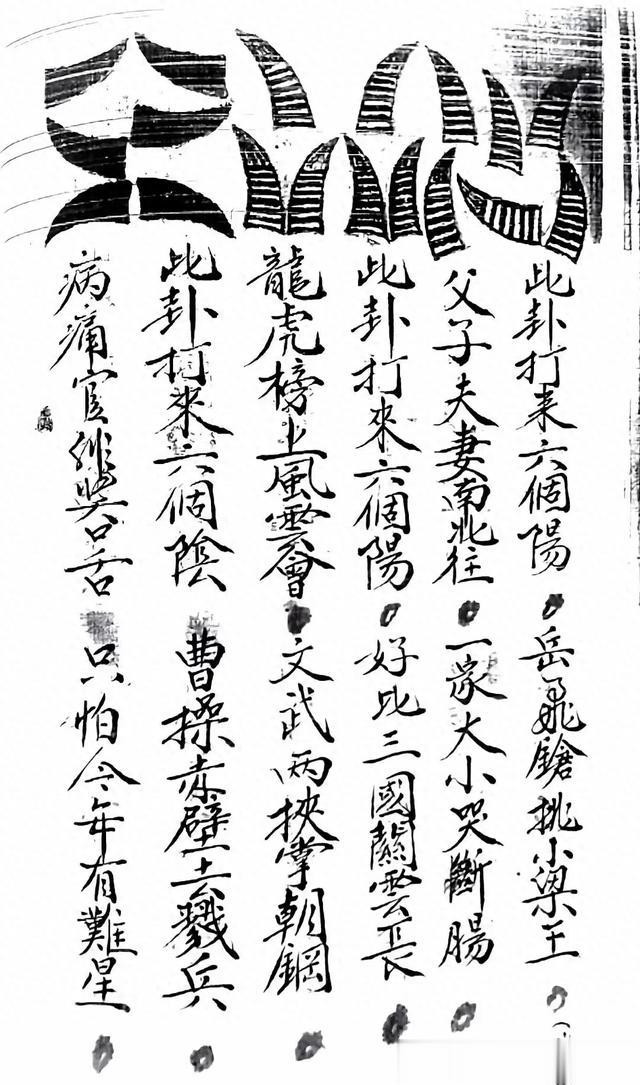 此卦打来六個陽 岳飛鎗挑小梁王
父子夫妻南北往 一家大小哭斷腸
此卦打來六個陽 好比三國關雲長
龍虎榜上風雲會 文武兩挾掌朝鋼
此卦打來六個陰 曹操赤壁去戮兵
病痛官非與口舌 只怕今年有難星